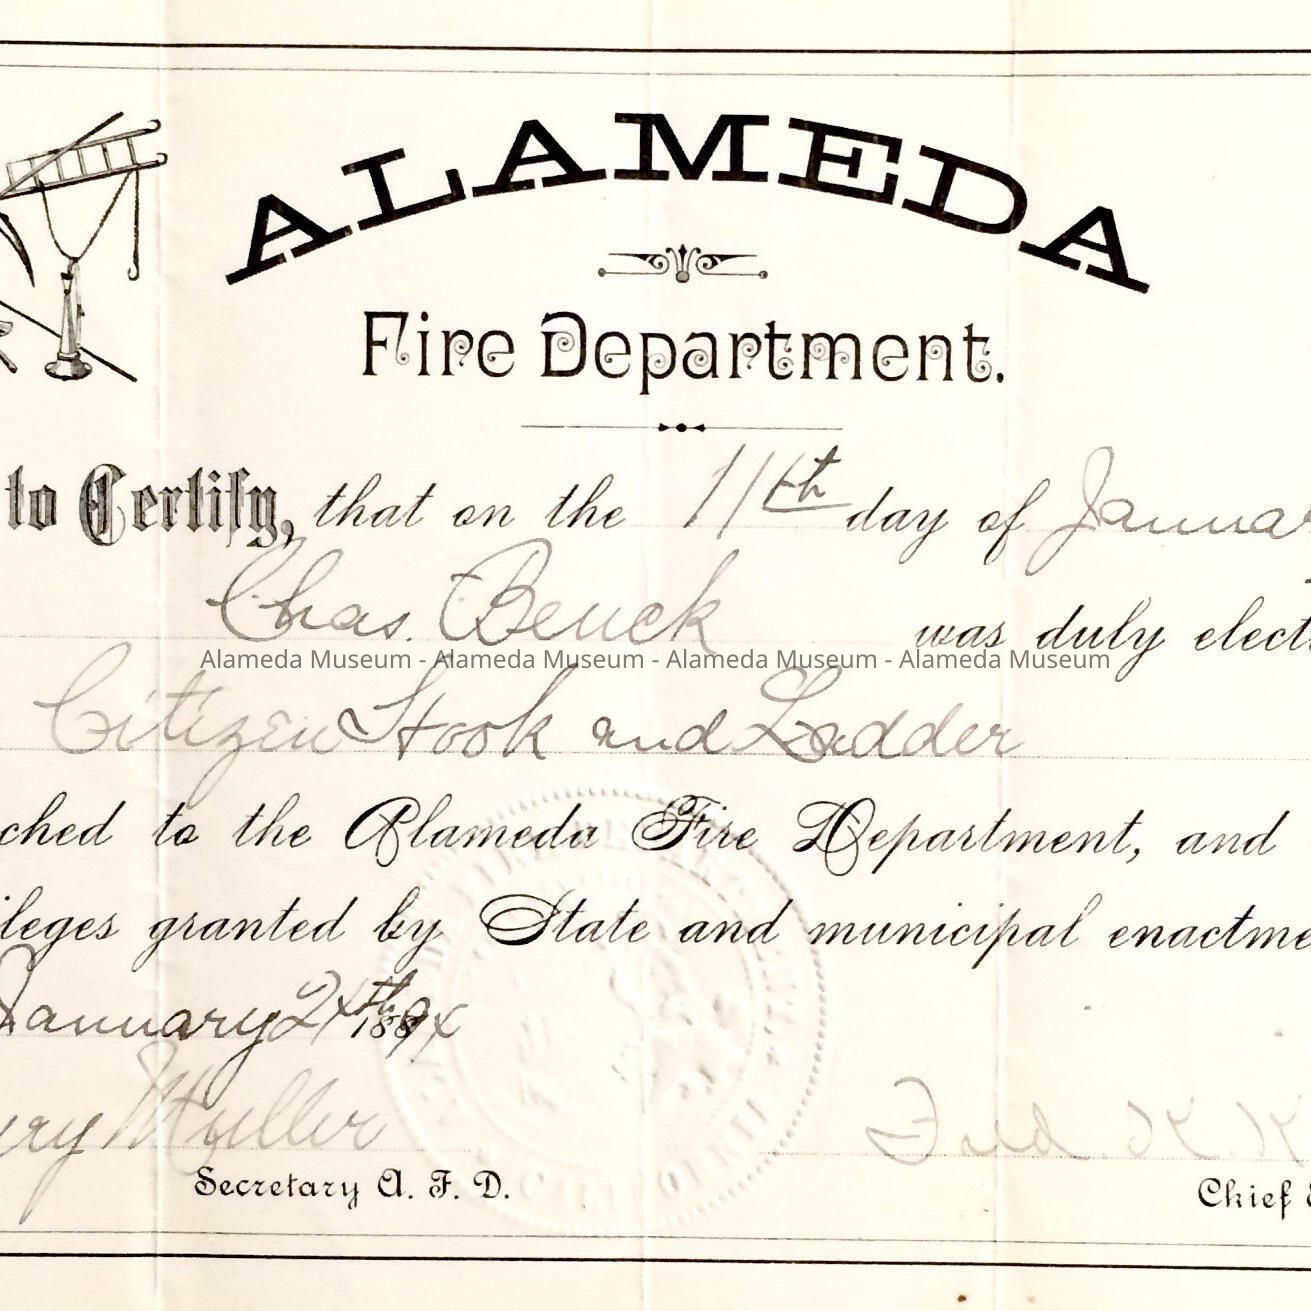 ALAMEDA
Fire Department.
to Certify, that on the 11th day of Januar
Chas. Beuck was duly elect
Alameda Museum - Alameda Museum - Alameda Museum - Alameda Museum
Citizen Hook and Ladder
ched to the Alameda Fire Department, and
ileges granted by State and municipal enactme
January 24th
ry Muller Fred. K. K
Secretary A. F. D. Chief
CALIFORNIA